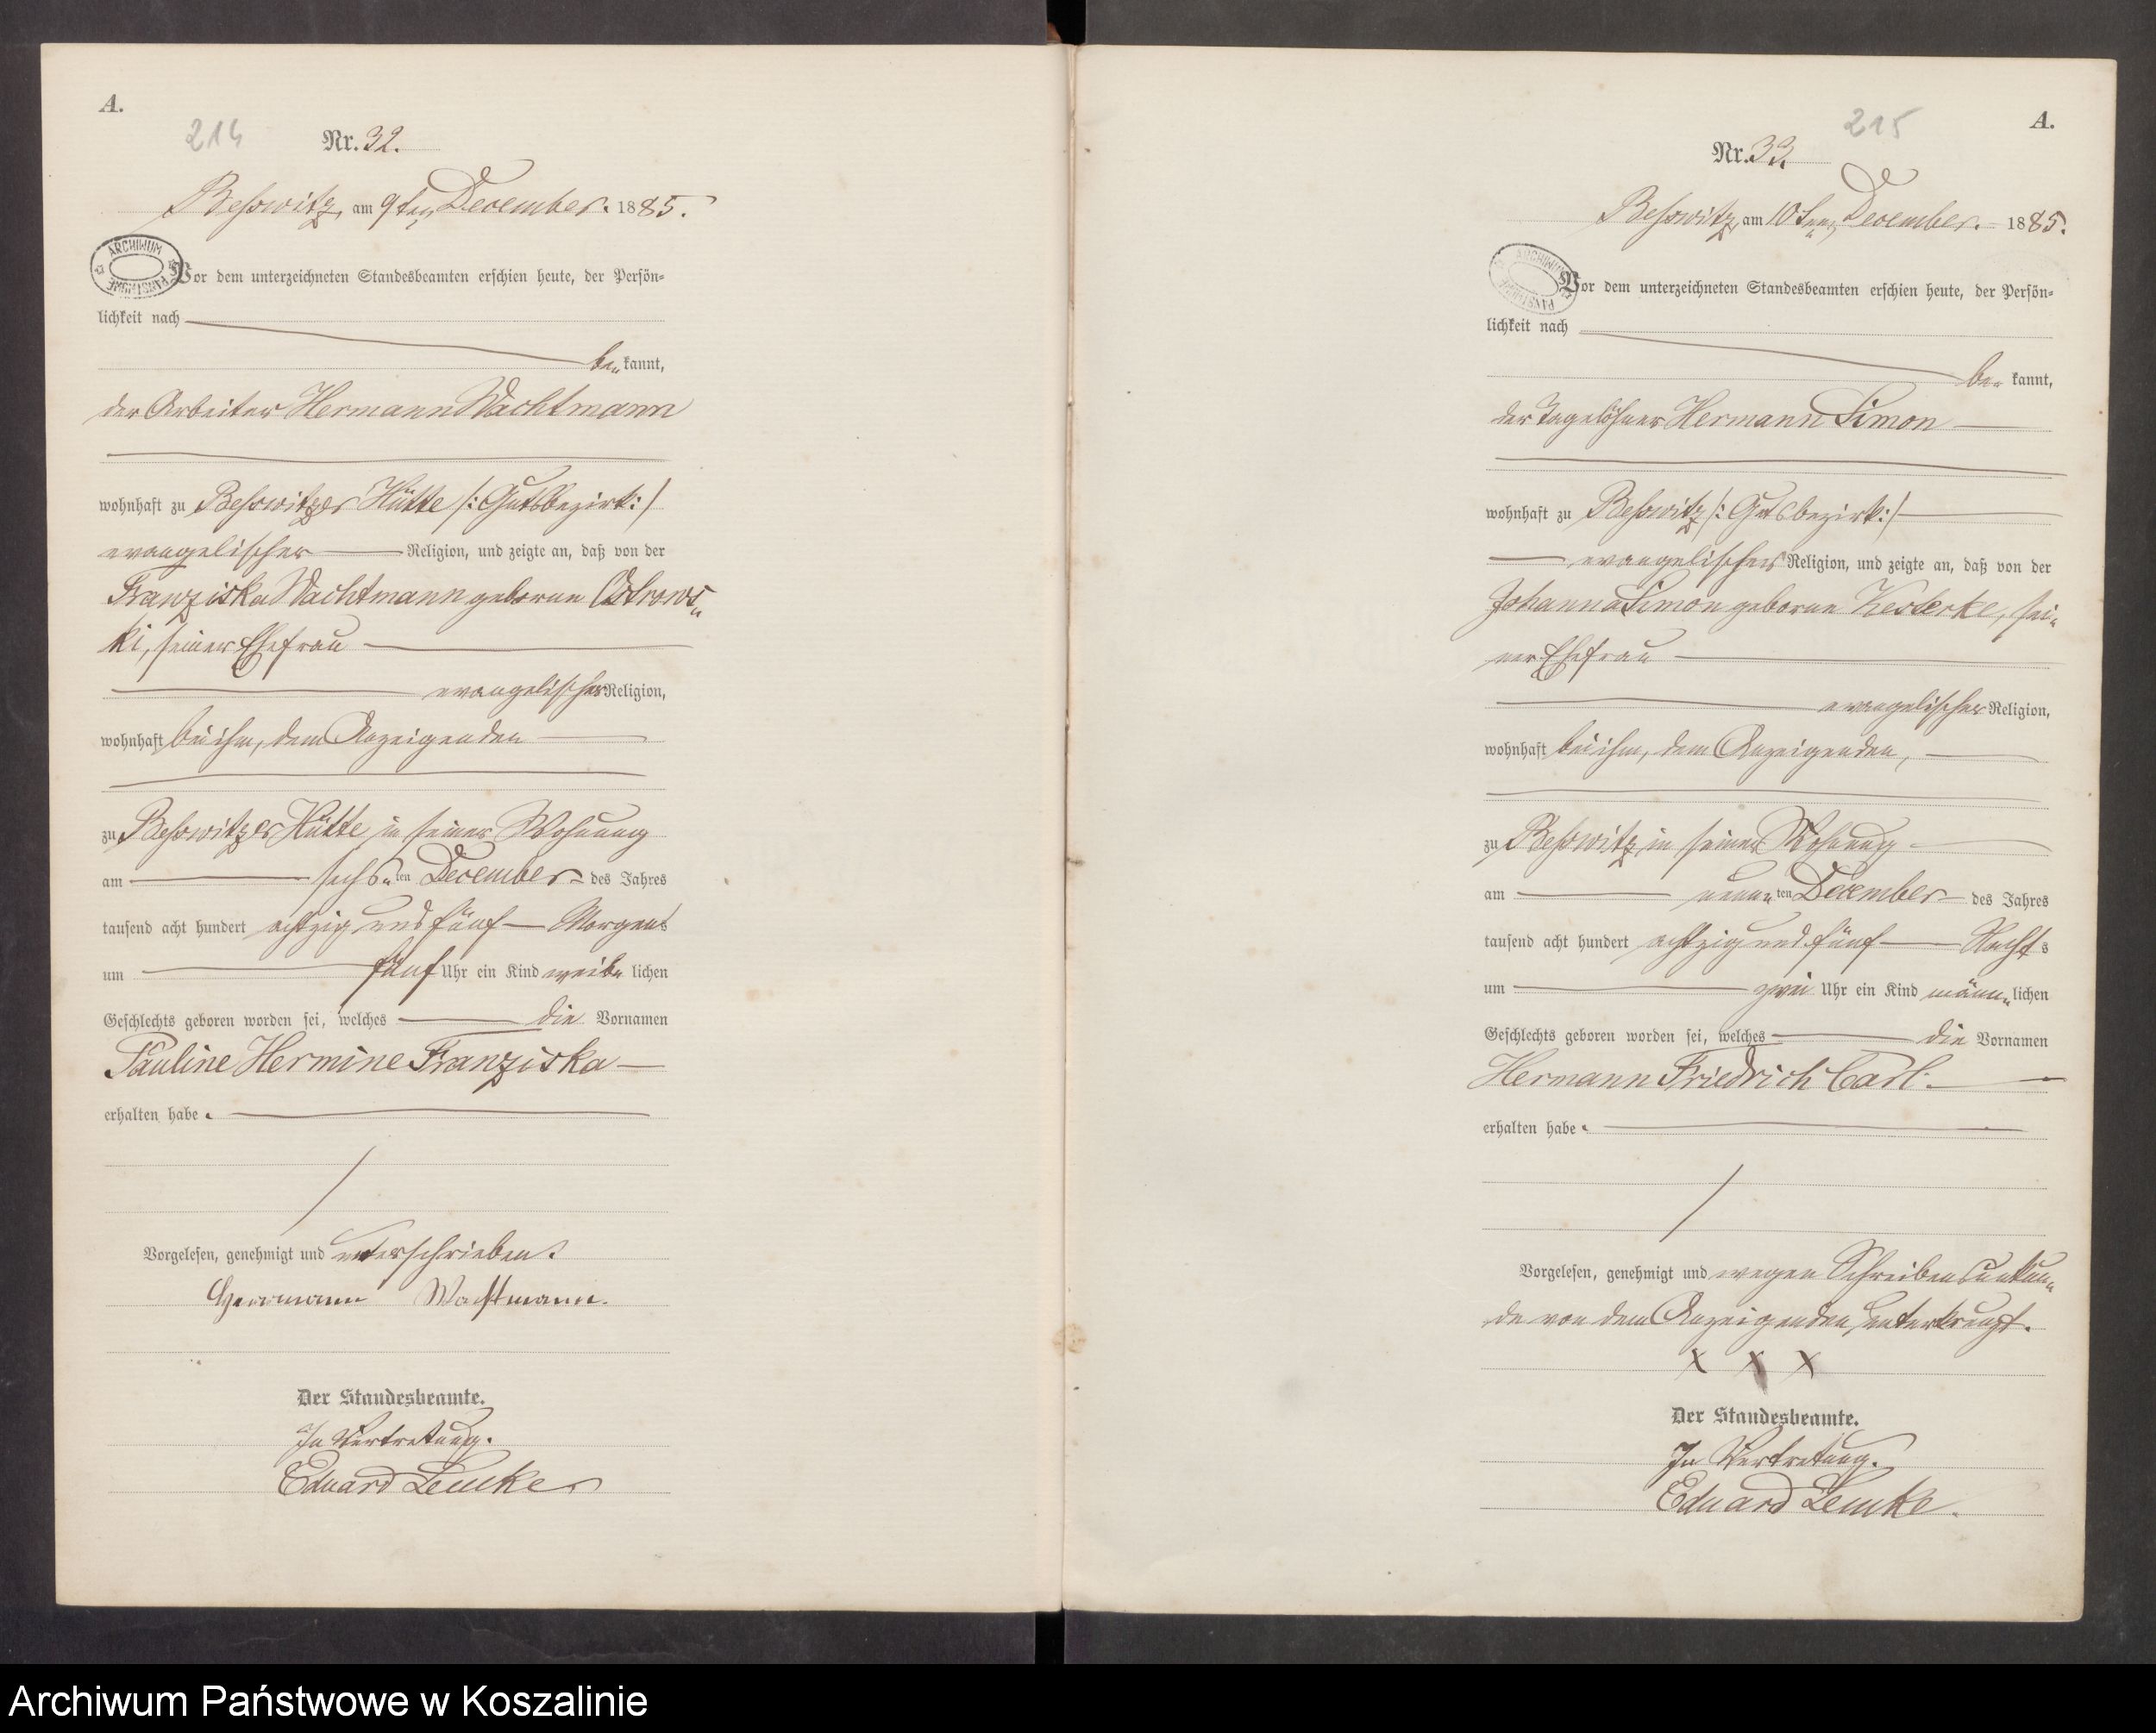 A.
214
Nr. 32.
Beßwitz, am 9ten December. 1885.
ARCHIWUM PAŃSTWOWE
Vor dem unterzeichneten Standesbeamten erschien heute, der Persön=
lichkeit nach
be= kannt,
der Arbeiter Hermann Wachtmann
wohnhaft zu Beßwitzer Hütte /: Gutsbezirk :/
evangelischer Religion, und zeigte an, daß von der
Franziska Wachtmann geborne Ostrows=
ki, seiner Ehefrau
evangelischer Religion,
wohnhaft bei ihm, dem Anzeigenden
zu Beßwitzer Hütte in seiner Wohnung
am sechs=ten December des Jahres
tausend acht hundert achtzig und fünf Morgens
um fünf Uhr ein Kind weib= lichen
Geschlechts geboren worden sei, welches die Vornamen
Pauline Hermine Franziska
erhalten habe.
Vorgelesen, genehmigt und unterschrieben.
Herrmann Wachtmann.
Der Standesbeamte.
In Vertretung.
Eduard Lemke
215
A.
Nr. 33.
Beßwitz, am 10ten December. 1885.
ARCHIWUM PAŃSTWOWE
Vor dem unterzeichneten Standesbeamten erschien heute, der Persön=
lichkeit nach
be= kannt,
der Tagelöhner Hermann Simon
wohnhaft zu Beßwitz /: Gutsbezirk :/
evangelischer Religion, und zeigte an, daß von der
Johanna Simon geborne Kesterke, sei=
ner Ehefrau
evangelischer Religion,
wohnhaft bei ihm, dem Anzeigenden,
zu Beßwitz in seiner Wohnung
am neun=ten December des Jahres
tausend acht hundert achtzig und fünf Nachts
um zwei Uhr ein Kind männ= lichen
Geschlechts geboren worden sei, welches die Vornamen
Hermann Friedrich Carl.
erhalten habe.
Vorgelesen, genehmigt und wegen Schreibensunkun=
de von dem Anzeigenden unterkreuzt.
X X X
Der Standesbeamte.
In Vertretung.
Eduard Lemke.
Archiwum Państwowe w Koszalinie